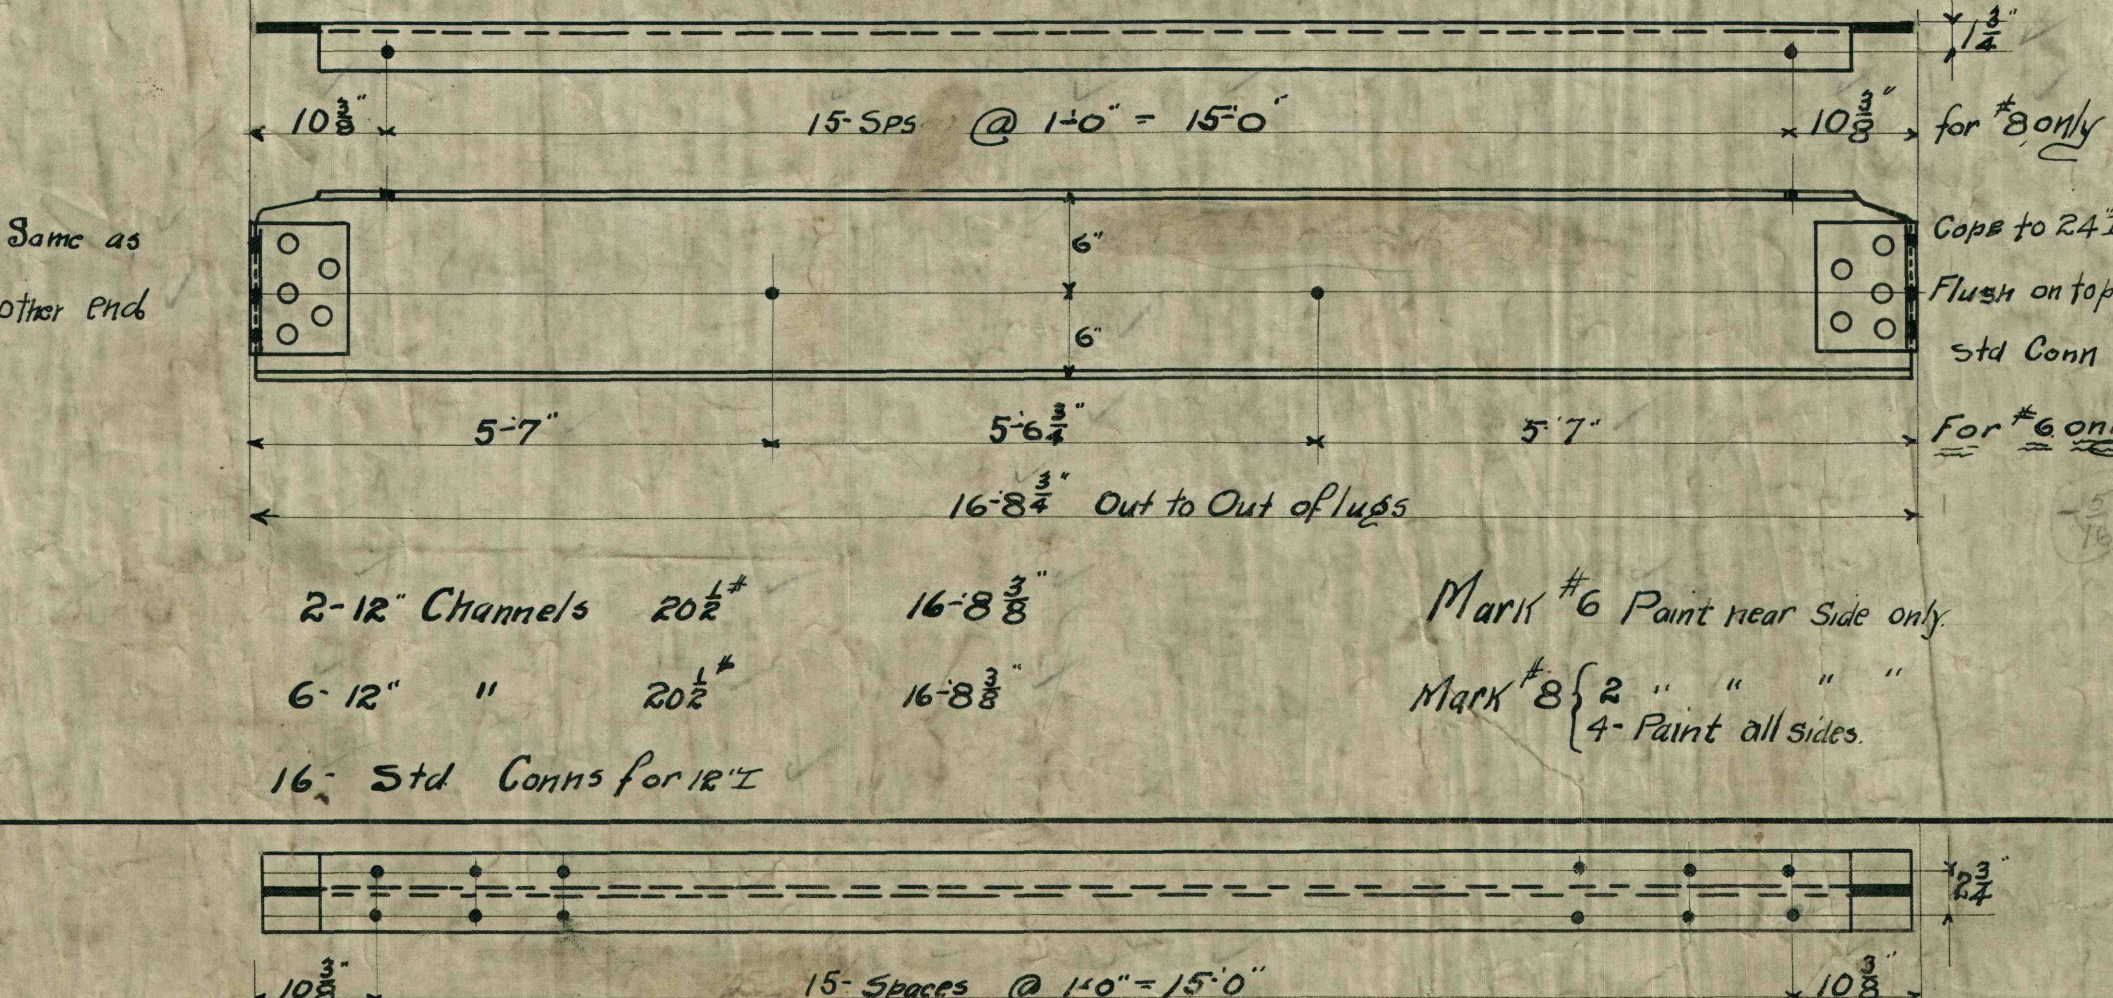 1 3/4"
10 3/8" 15-Sps @ 1-0" = 15-0" 10 3/8" for #8 only
Same as
other end
6"
6"
Cope to 24"I
Flush on top
Std Conn
5-7" 5-6 3/4" 5-7" For #6
16-8 3/4" Out to Out of lugs
2-12" Channels 20 1/2# 16-8 3/8" Mark #6 Paint near Side only.
6-12" " 20 1/2# 16-8 3/8" Mark #8 { 2 " " " "
4-Paint all sides.
16- Std Conns for 12"I
2 3/4"
10 3/8" 15-Spaces @ 1-0" = 15-0" 10 3/8"